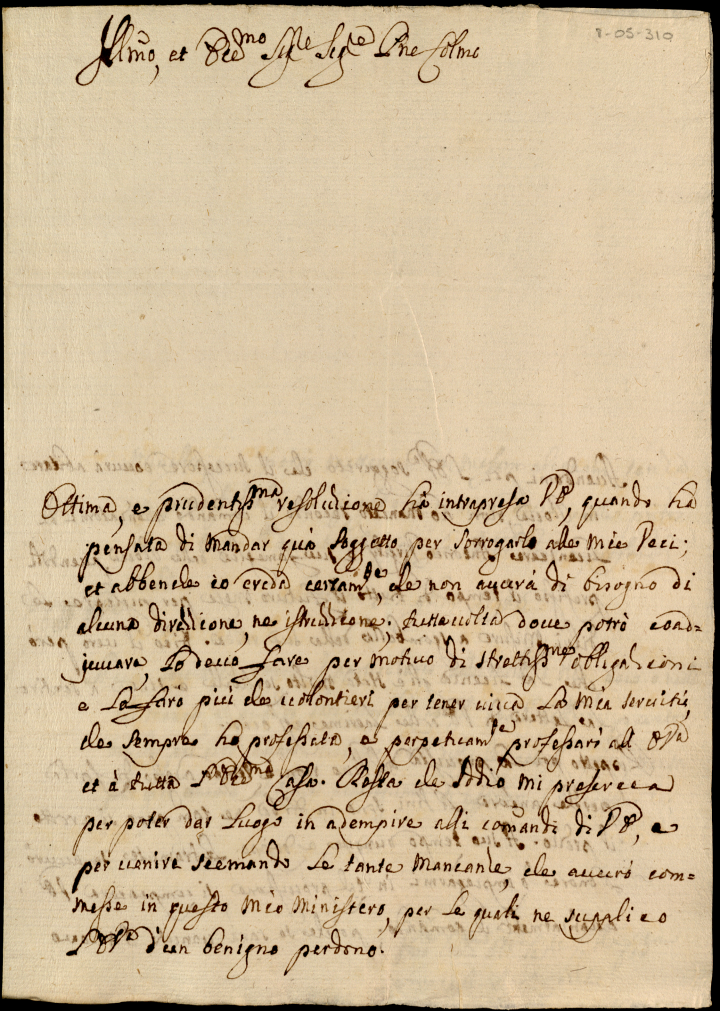 8-05-310
Illmo, et Eccmo Sigre Sigre Pne Colmo
Ottima, e prudentissma resoluzione hà intrapresa V.E., quando ha
pensata di mandar quà soggetto per sorrogarlo alle mie veci;
et abbenche io creda certamte, che non averà di bisogno di
alcuna direzione, ne istruzione; tutta volta dove potrò coad-
juvare, lo devo fare per motivo di strettissme obligazioni
e lo farò più che volontieri per tener viva la mia servitù,
che sempre ho professata, e perpetuamte professarò all' E.Va
et à tutta l'Eccma Casa. Resta che Iddio mi preserva
per poter dar luogo in adempire alli comandi di V.E., e
per venire scemando le tante mancanze, che averò com-
messe in questo mio Ministero, per le quali ne supplico
l'E.Va d'un benigno perdono.